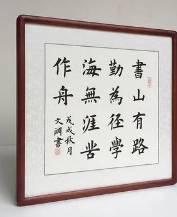 書山有路
勤為徑學
海無涯苦
作舟
戊戌秋月
文書